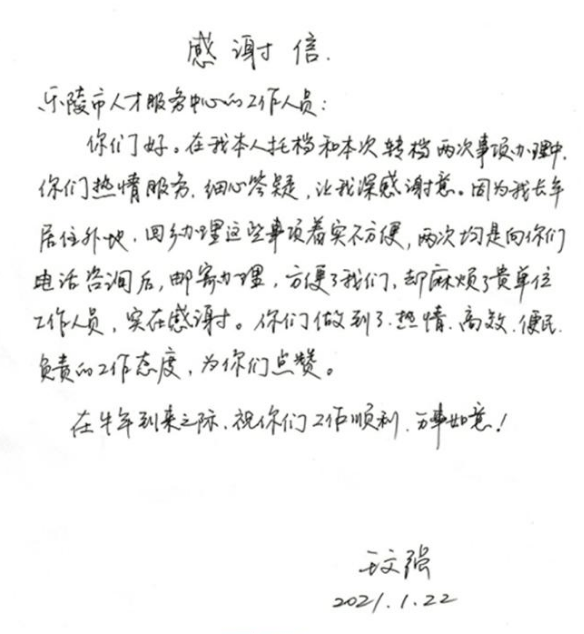 感谢信.
乐陵市人才服务中心的工作人员：
你们好。在我本人托档和本次转档两次事项办理中，
你们热情服务、细心答疑，让我深感谢意。因为我长年
居住外地，回乡办理这些事项着实不方便，两次均是向你们
电话咨询后，邮寄办理，方便了我们，却麻烦了贵单位
工作人员，实在感谢。你们做到了热情、高效、便民、
负责的工作态度，为你们点赞。
在牛年到来之际，祝你们工作顺利、万事如意！
王文强
2021.1.22